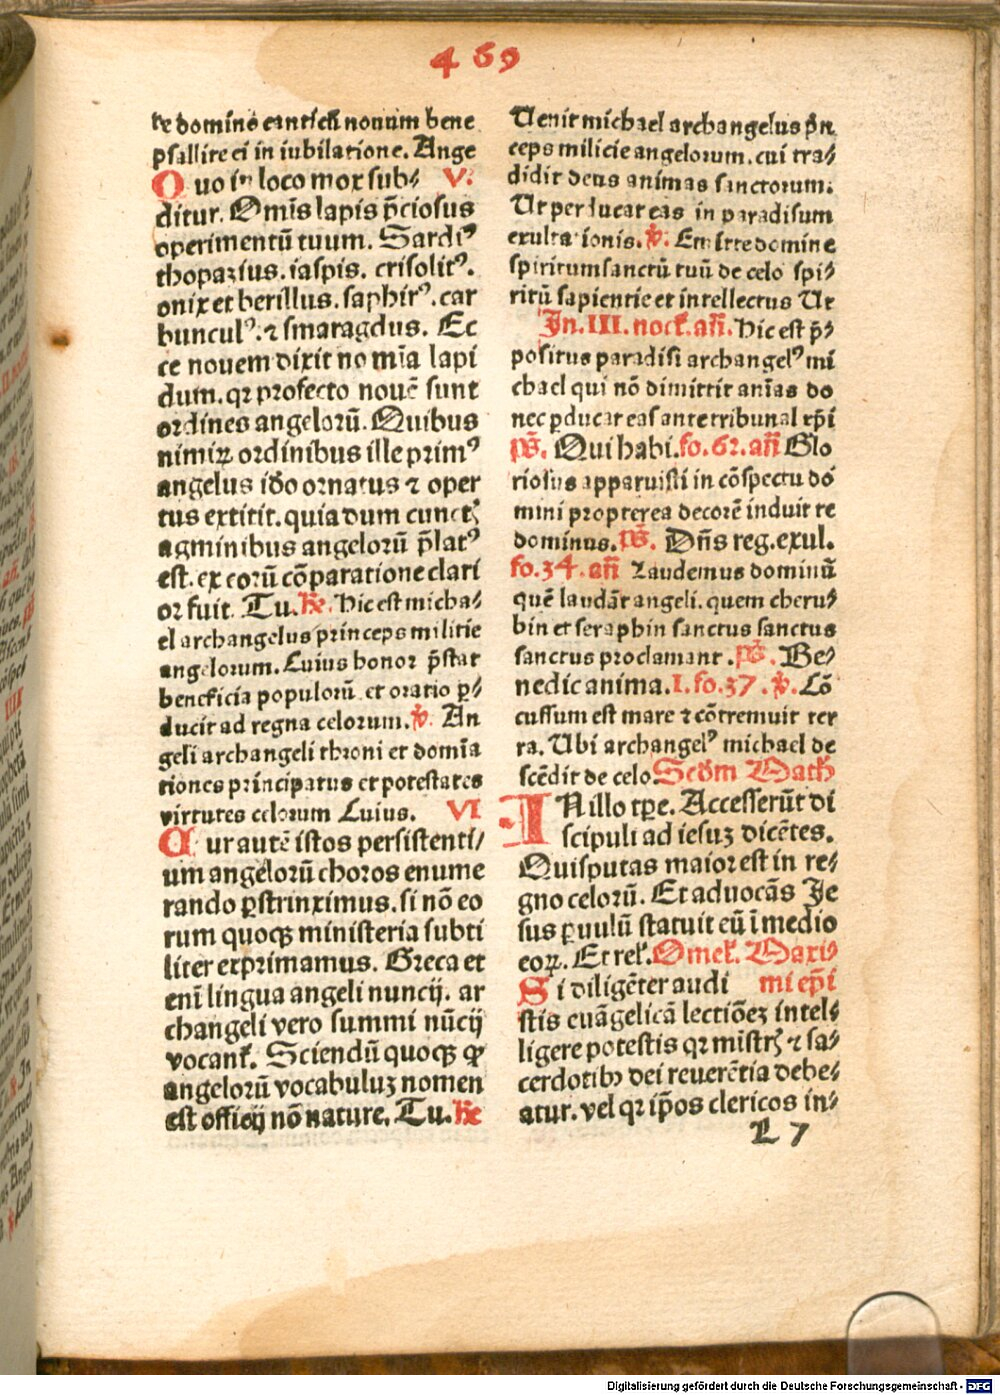 469
te domino canticū nouum bene
psallite ei in iubilatione. Ange
Quo in loco mox sub⸗ V.
ditur. Omīs lapis p̄ciosus
operimentū tuum. Sardiꝰ
thopazius. iaspis. crisolitꝰ.
onix et berillus. saphirꝰ. car
bunculꝰ. ⁊ smaragdus. Ec
ce nouem dixit nomīa lapi
dum. qꝛ profecto nouē sunt
ordines angeloꝛū. Quibus
nimiꝝ ordinibus ille primꝰ
angelus iō ornatus ⁊ oper
tus extitit. quia dum cunctꝭ
agminibus angeloꝛū p̄latꝰ
est. ex eoꝛū cōparatione clari
or fuit. Tu. ꝶe. Hic est micha⸗
el archangelus princeps militie
angelorum. Cuius honor p̄stat
beneficia populorū et oratio ꝑ⸗
ducit ad regna celorum. ℣. An
geli archangeli throni et domīa
tiones principatus et potestates
virtutes celorum Cuius. VI
Cur autē istos persistenti⸗
um angeloꝛū choros enume
rando ꝑstrinximus. si nō eo
rum quoqꝫ ministeria subti
liter exprimamus. Greca et
enī lingua angeli nuncij. ar
changeli vero summi nūcij
vocant᷑. Sciendū quoqꝫ ꝙ
angeloꝛū vocabuluꝫ nomen
est officij nō nature. Tu. ꝶe
Uenit michael archangelus p̄n
ceps milicie angelorum. cui tra⸗
didit deus animas sanctorum.
Ut perducat eas in paradisum
exultationis. ℣. Emitte domine
spiritum sanctū tuū de celo spi⸗
ritū sapientie et intellectus Ut
In. III. noct᷑. añ. Hic est p̄⸗
positus paradisi archangelꝰ mi
chael qui nō dimittit anīas do
nec ꝑducat eas ante tribunal xp̄i
ps̄. Qui habi. fo. 62. añ Glo
riosus apparuisti in cōspectu do
mini propterea decorē induit te
dominus. ps̄. Dñs reg. exul.
fo. 34. añ Laudemus dominū
quē laudāt angeli. quem cheru⸗
bin et seraphin sanctus sanctus
sanctus proclamant. ps̄. Be⸗
nedic anima. I. fo. 37. ℣. Cō
cussum est mare ⁊ cōtremuit ter
ra. Ubi archangelꝰ michael de
scēdit de celo. Scd̄m Math᷑
IN illo tꝑe. Accesserūt di
scipuli ad iesuꝫ dicētes.
Quis putas maior est in re⸗
gno celoꝛū. Et aduocās Je
sus ꝑuulū statuit eū ī medio
eoꝝ. Et rel᷑. Omel᷑. Maxi⸗
Si diligēter audi mi ep̄i
stis euāgelicā lectiōeꝫ intel⸗
ligere potestis qꝛ mīstrꝭ ⁊ sa⸗
cerdotibꝰ dei reuerētia debe⸗
atur. vel qꝛ ip̄os clericos in⸗
L 7
Digitalisierung gefördert durch die Deutsche Forschungsgemeinschaft - DFG